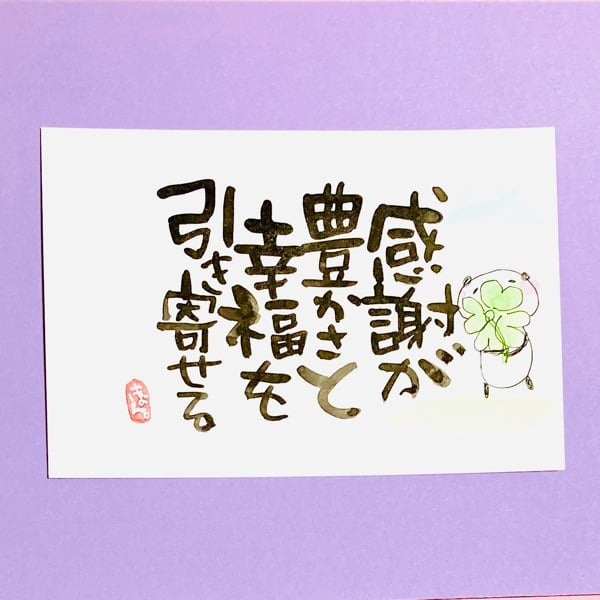 感謝が
豊かさと
幸福を
引き寄せる